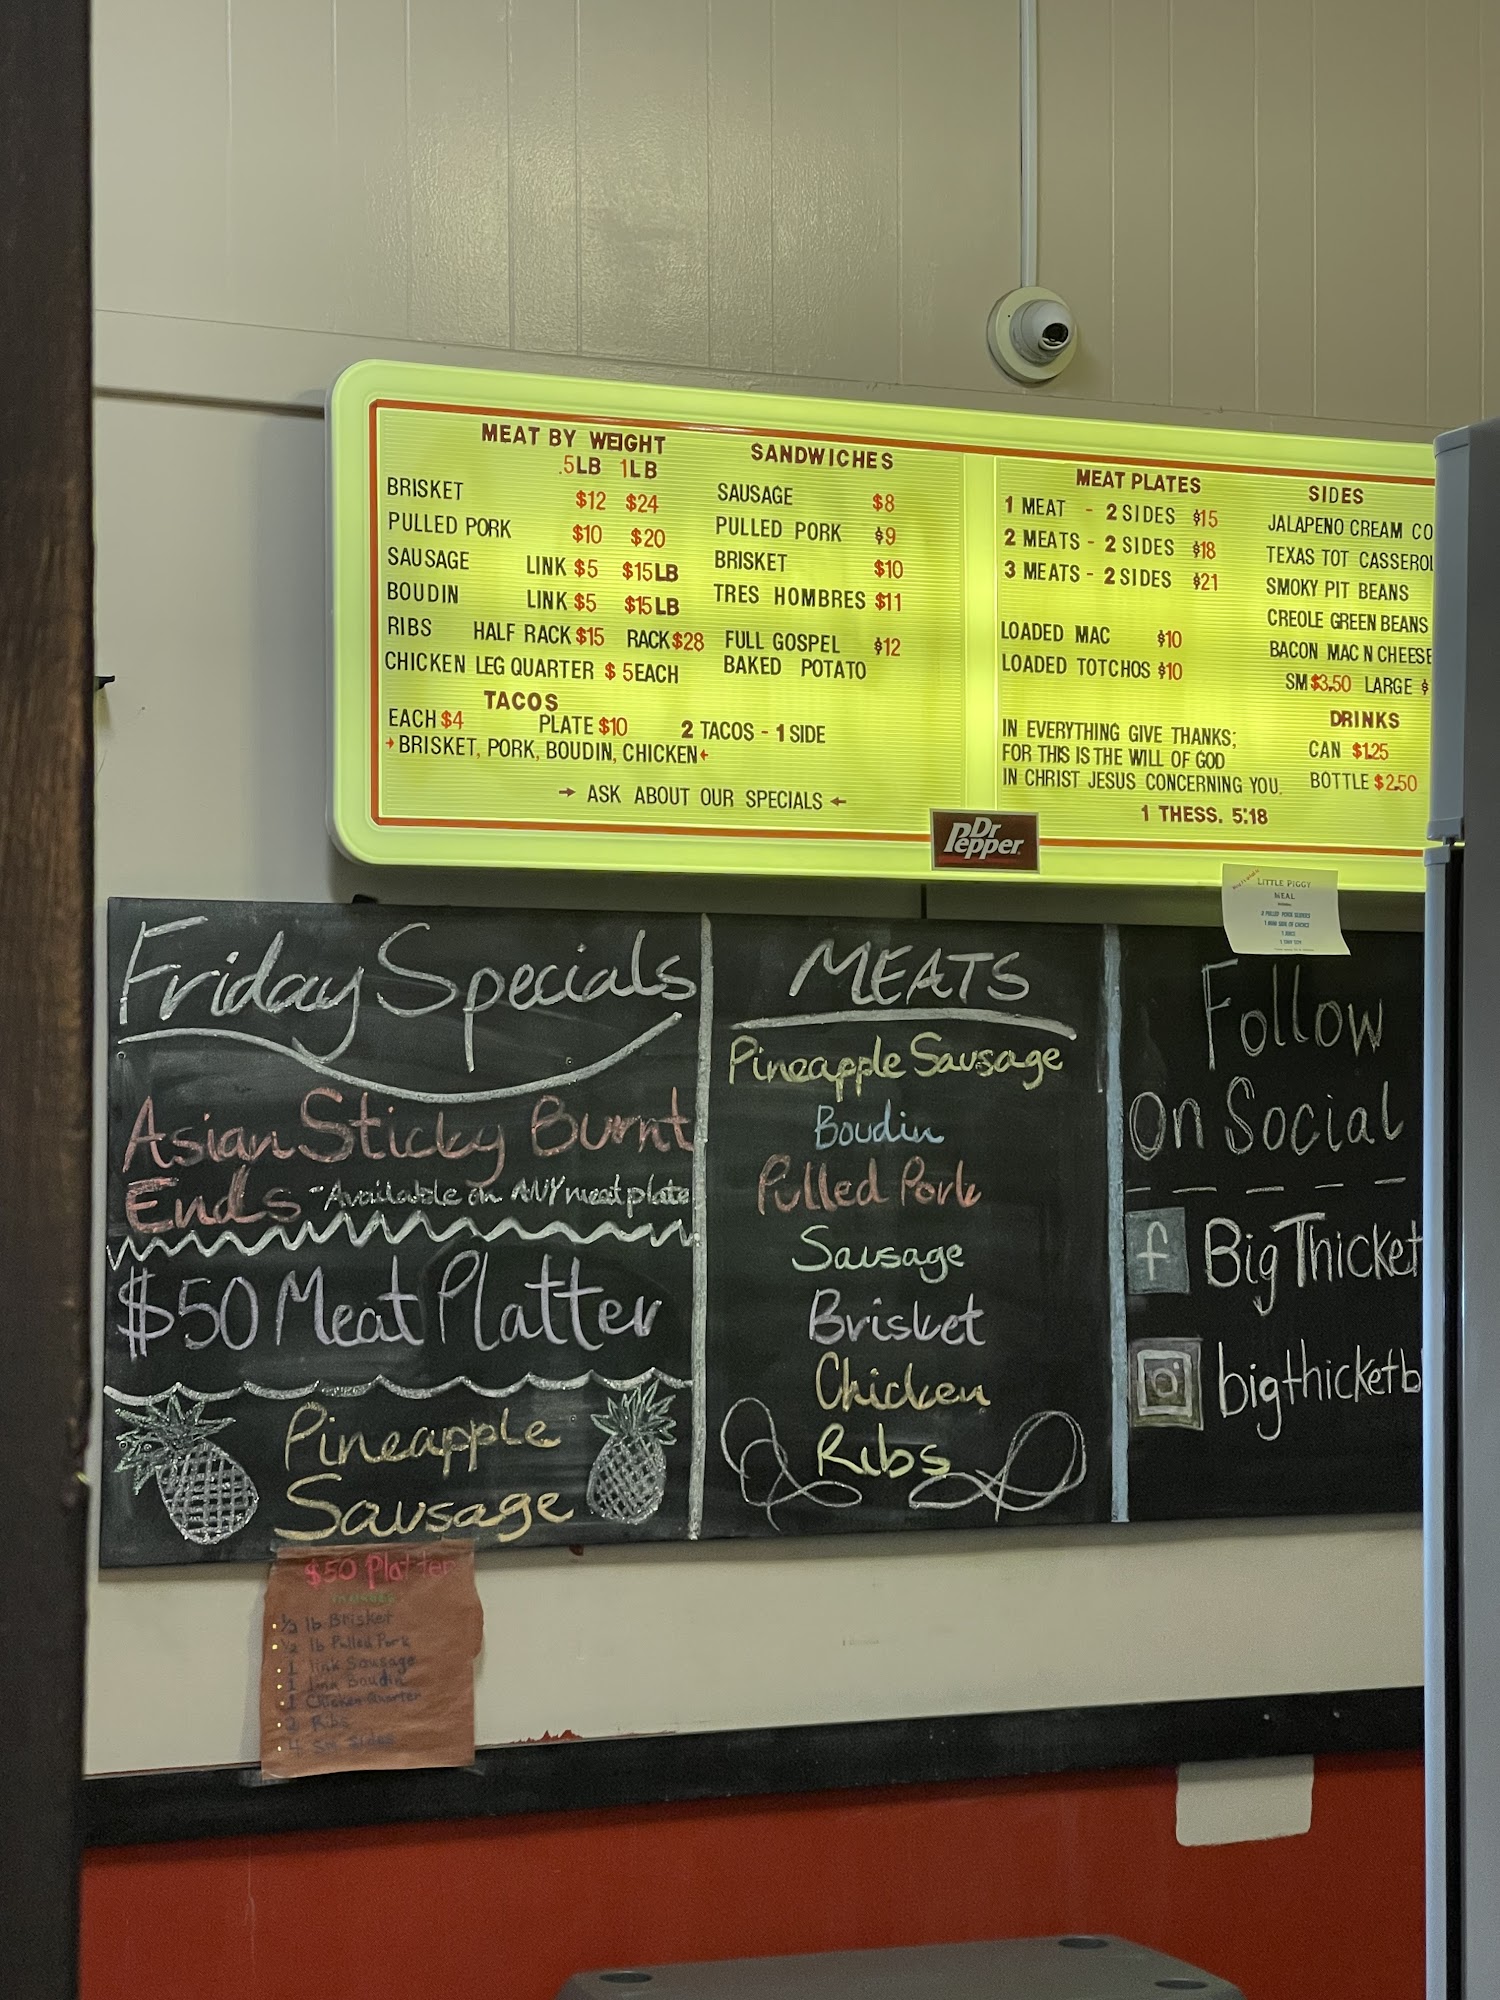 MEAT BY WEIGHT
.5LB 1LB
BRISKET $12 $24
PULLED PORK $10 $20
SAUSAGE LINK $5 $15LB
BOUDIN LINK $5 $15LB
RIBS HALF RACK $15 RACK $28
CHICKEN LEG QUARTER $5 EACH
TACOS
EACH $4 PLATE $10 2 TACOS - 1 SIDE
→BRISKET, PORK, BOUDIN, CHICKEN←
→ ASK ABOUT OUR SPECIALS ←
SANDWICHES
SAUSAGE $8
PULLED PORK $9
BRISKET $10
TRES HOMBRES $11
FULL GOSPEL $12
BAKED POTATO
MEAT PLATES
1 MEAT - 2 SIDES $15
2 MEATS - 2 SIDES $18
3 MEATS - 2 SIDES $21
LOADED MAC $10
LOADED TOTCHOS $10
IN EVERYTHING GIVE THANKS;
FOR THIS IS THE WILL OF GOD
IN CHRIST JESUS CONCERNING YOU.
1 THESS. 5:18
SIDES
JALAPENO CREAM CO
TEXAS TOT CASSEROL
SMOKY PIT BEANS
CREOLE GREEN BEANS
BACON MAC N CHEESE
SM $3.50 LARGE $
DRINKS
CAN $1.25
BOTTLE $2.50
Dr
Pepper
LITTLE PIGGY
MEAL
Friday Specials
Asian Sticky Burnt
Ends -Available on ANY meat plate
$50 Meat Platter
Pineapple
Sausage
MEATS
Pineapple Sausage
Boudin
Pulled Pork
Sausage
Brisket
Chicken
Ribs
Follow
On Social
f Big Thicket
bigthicketb
$50 Platter
• 1/2 lb Brisket
• 1/2 lb Pulled Pork
• 1 link Sausage
• 1 link Boudin
• 1 Chicken Quarter
• 2 Ribs
• 4 Sm Sides